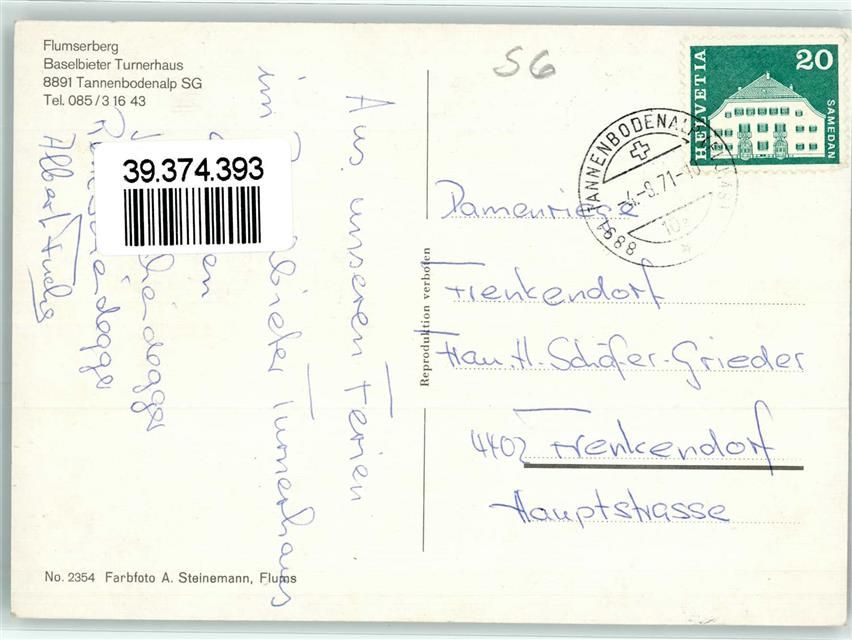 Flumserberg
Baselbieter Turnerhaus
8891 Tannenbodenalp SG
Tel. 085/3 16 43
SG
HELVETIA
20
SAMEDAN
8891 TANNENBODENALP
-4.-9.71-10
10a
39.374.393
Aus unseren Ferien
im Turnerhaus
Albert Fuchs
Reproduktion verboten
Damenriege
Frenkendorf
Frau. H. Schäfer-Grieder
4402 Frenkendorf
Hauptstrasse
No. 2354 Farbfoto A. Steinemann, Flums